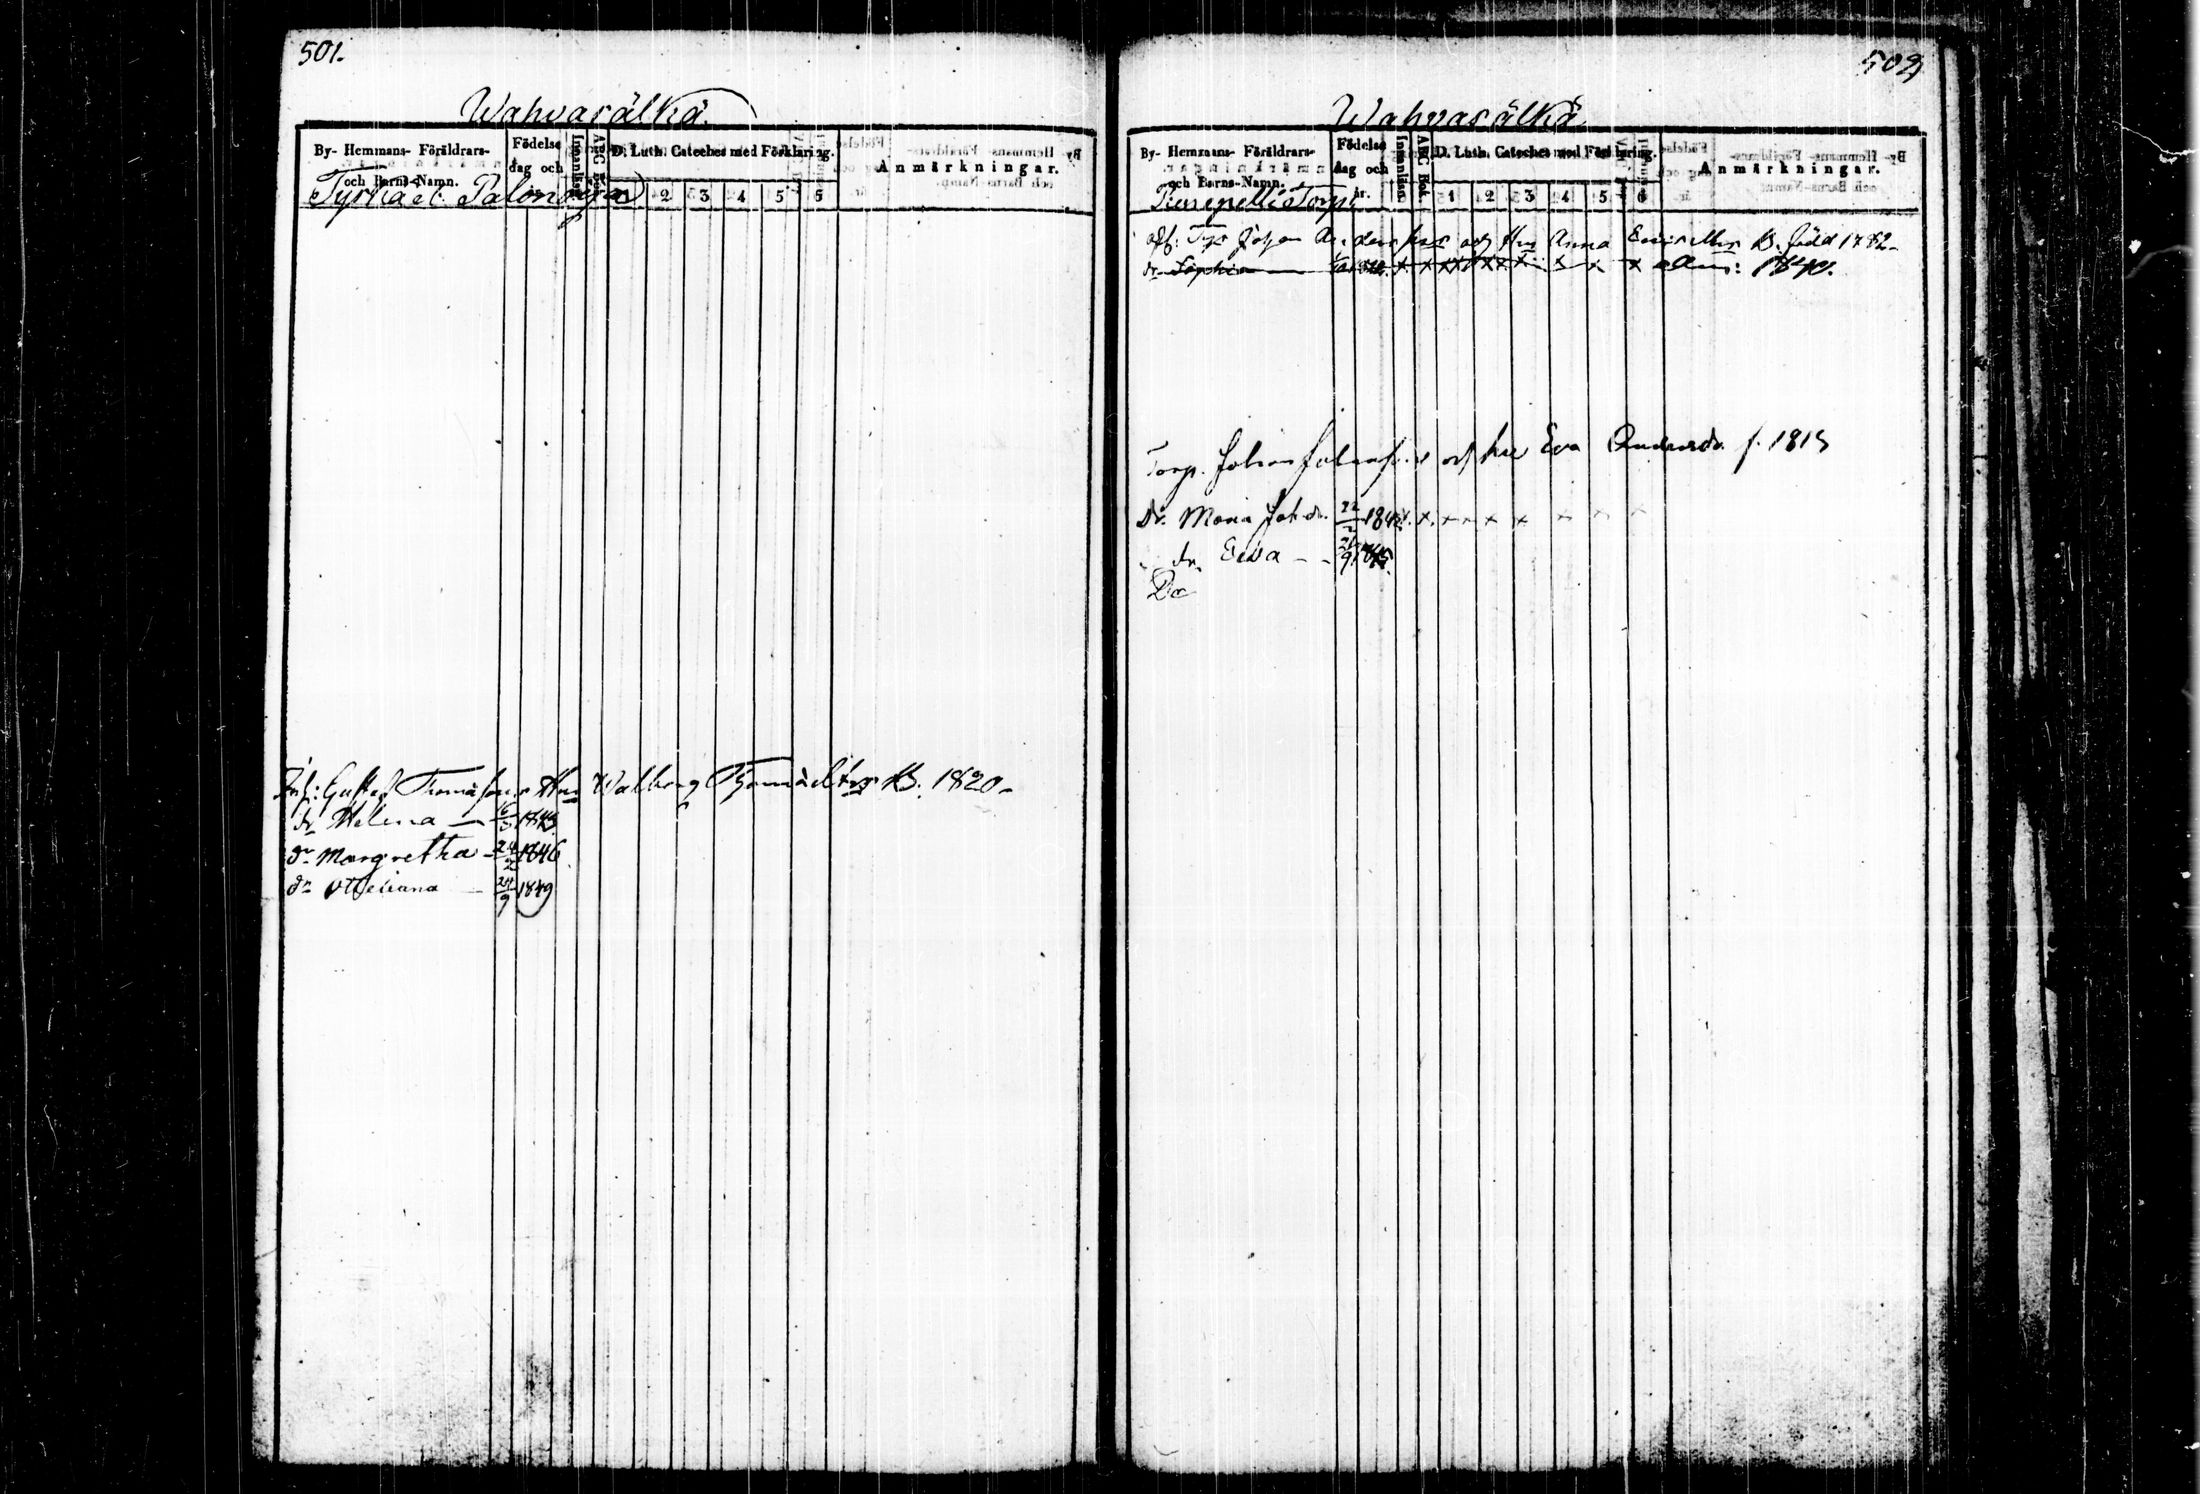 501.
Wahvaselkä
By- Hemmans- Föräldrars- och Barns-Namn.
Födelse dag och
Innanläsn.
ABC Bok
D. Luth. Cateches med Förklaring.
Anmärkningar.
2 3 4 5 6
Gustaf Thomasson Hu Walborg B. 1820
dr Helena 16/3 1843
dr Margretha 24/2 1846
dr Ottiliana 24/9 1849
502
Wahvaselkä
By- Hemmans- Föräldrars- och Barns-Namn.
Födelse dag och år.
Innanläsn.
ABC Bok
D. Luth. Cateches med Förklaring.
Anmärkningar.
1 2 3 4 5 6
Torp
Johan Andersson och Hu Anna B. född 1782
dr Sophia x x x x x x x x 1840.
Torp. Johan Johansson och hu Eva Andersdr f. 1815
Dr. Maria Joh.dr. 22 1842 x x x x x x x x
dr. Eeva - - 21/9 1845.
Dr